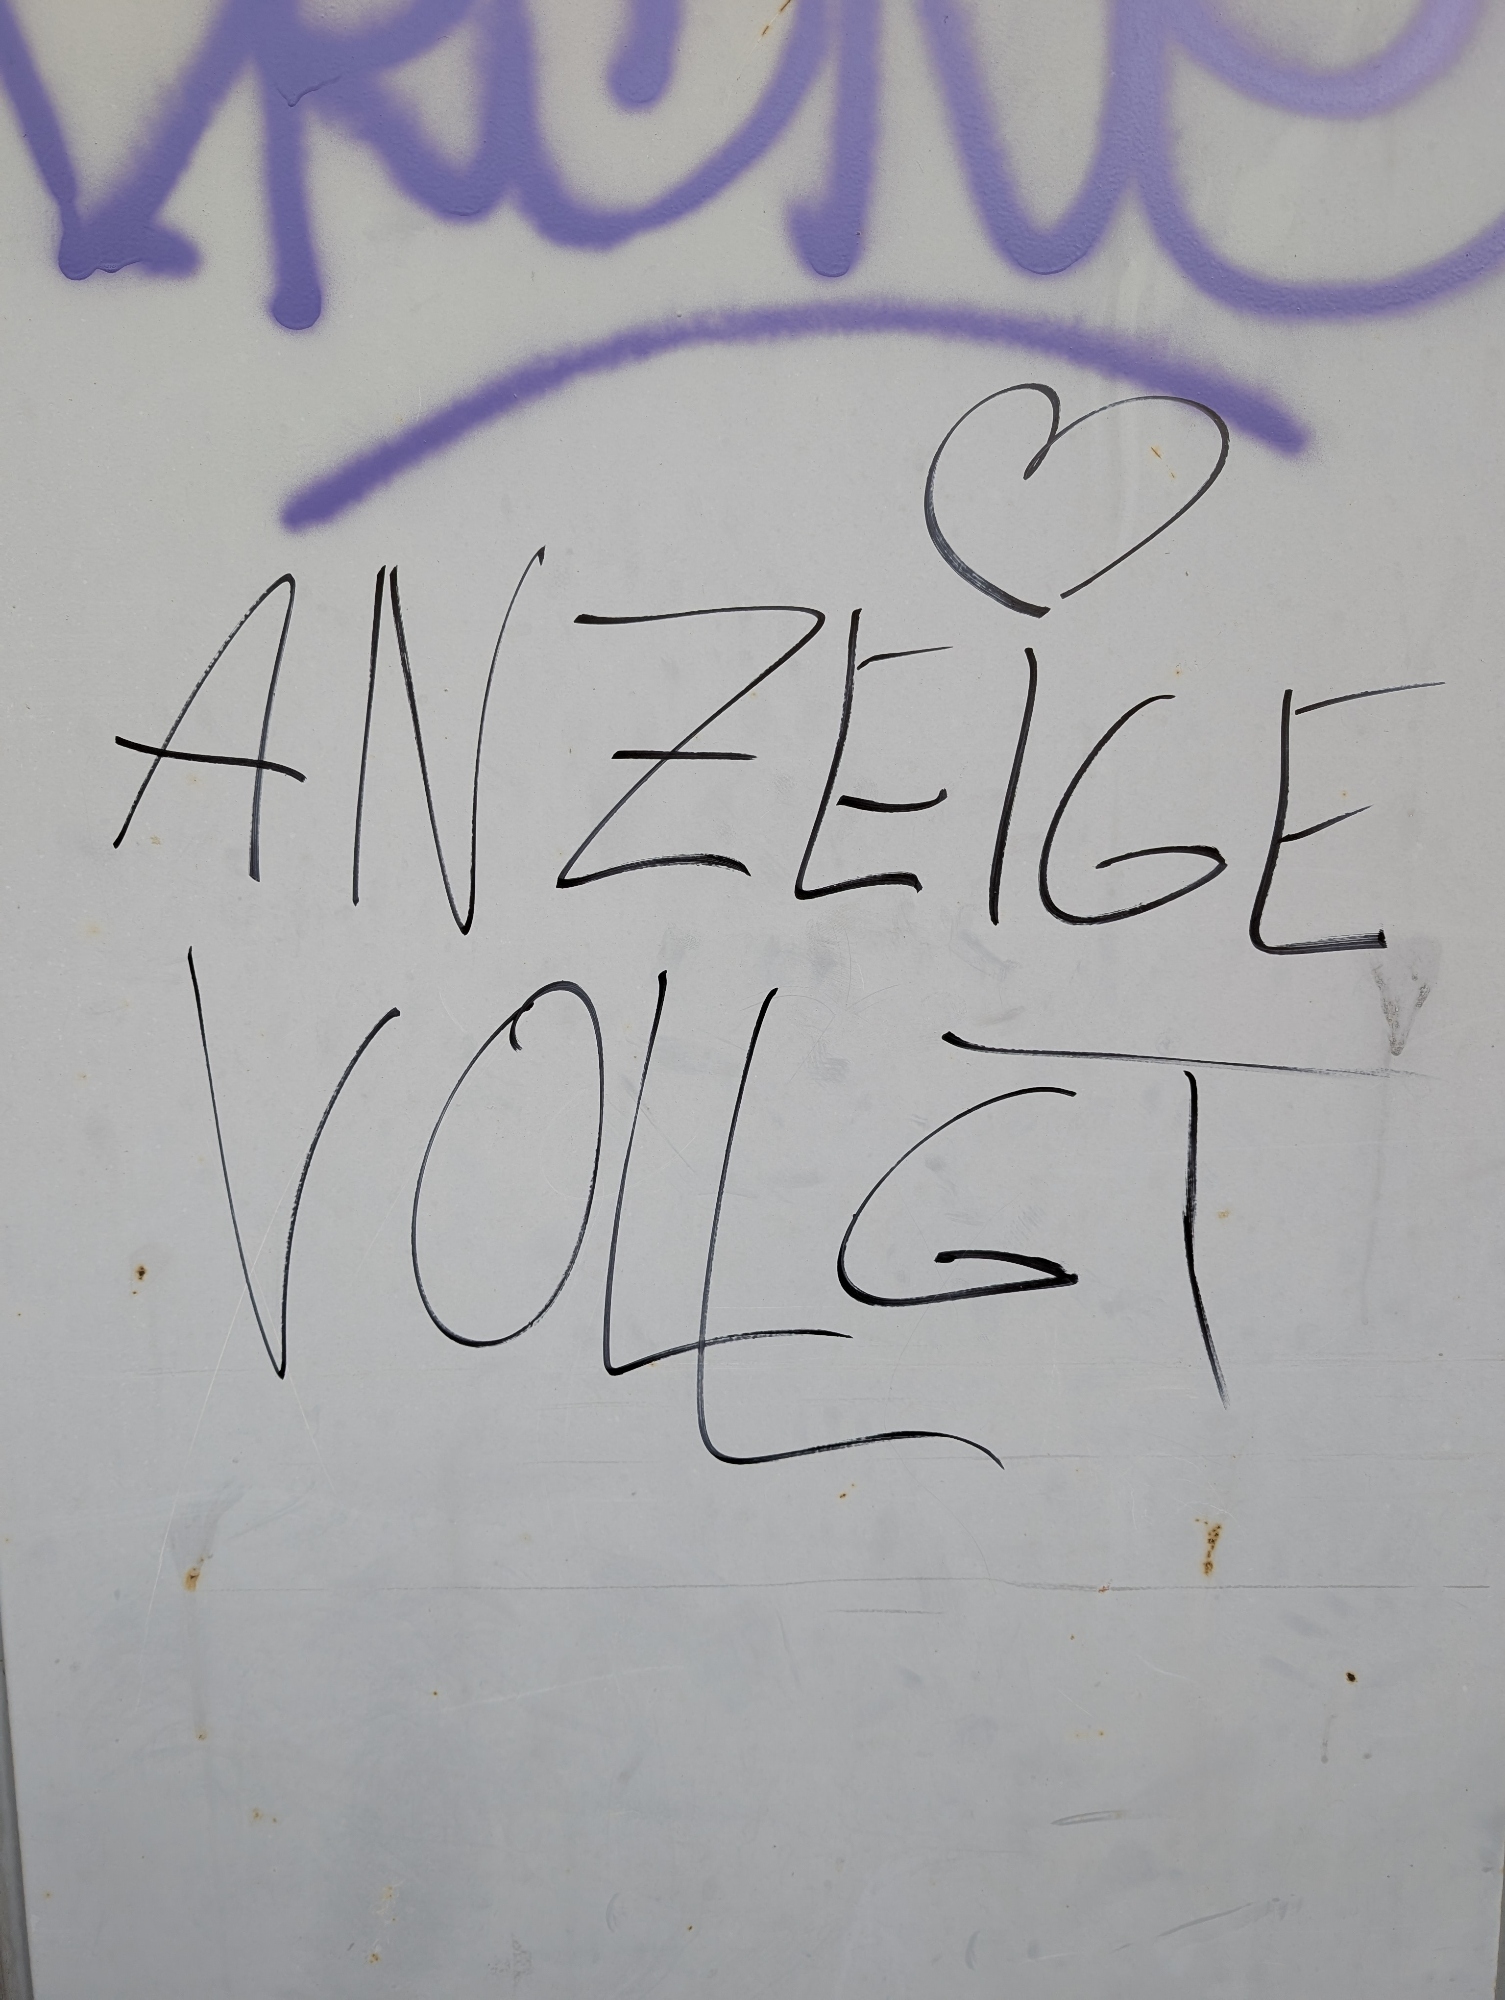 ANZEIGE
VOLLGT